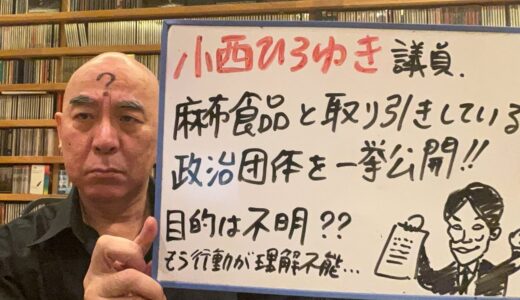 ?
小西ひろゆき議員.
麻布食品と取り引きしている
政治団体を一挙公開!!
目的は不明??
もう行動が理解不能...